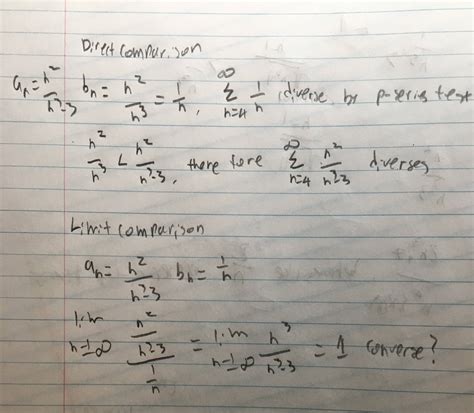 Direct comparison
aₙ = n²/(n³-3) bₙ = n²/n³ = 1/n, ∞∑n=4 1/n diverse by p-series test
n²/n³ < n²/(n³-3), there fore ∞∑n=4 n²/(n³-3) diverses
Limit comparison
aₙ = n²/(n³-3) bₙ = 1/n
lim n→∞ (n²/(n³-3))/(1/n) = lim n→∞ n³/(n³-3) = 1 converse?